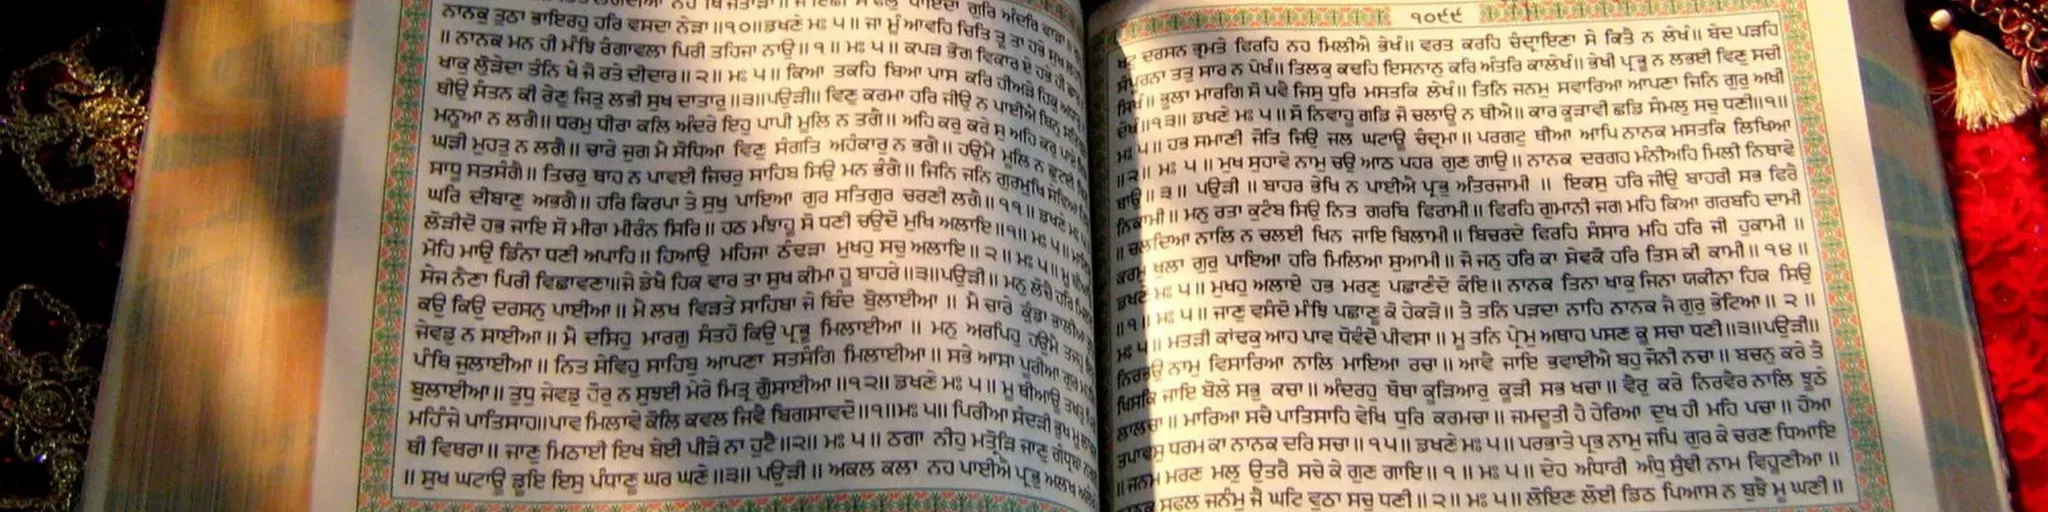 ਨਾਨਕੁ ਤੁਠਾ ਭਾਇਰਹੁ ਹਰਿ ਵਸਦਾ ਨੇੜਾ ॥੧੦॥ ਡਖਣੇ ਮਃ ੫ ॥ ਜਾ ਮੂੰ ਆਵਹਿ ਚਿਤਿ ਤੂ ਤਾ ਹਭੇ ਸੁਖ
॥ ਨਾਨਕ ਮਨ ਹੀ ਮੰਝਿ ਰੰਗਾਵਲਾ ਪਿਰੀ ਤਹਿਜਾ ਨਾਉ ॥੧॥ ਮਃ ੫ ॥ ਕਪੜ ਭੋਗ ਵਿਕਾਰ ਏ ਹਭੇ ਹੀ
ਖਾਕੁ ਲੋੁੜੇਦਾ ਤੰਨਿ ਖੇ ਜੋ ਰਤੇ ਦੀਦਾਰ ॥੨॥ ਮਃ ੫ ॥ ਕਿਆ ਤਕਹਿ ਬਿਆ ਪਾਸ ਕਰਿ ਹੀਅੜੇ ਹਿਕੁ
ਥੀਉ ਸੰਤਨ ਕੀ ਰੇਣੁ ਜਿਤੁ ਲਭੀ ਸੁਖ ਦਾਤਾਰੁ ॥੩॥ ਪਉੜੀ ॥ ਵਿਣੁ ਕਰਮਾ ਹਰਿ ਜੀਉ ਨ ਪਾਈਐ ਬਿਨੁ
ਮਨੂਆ ਨ ਲਗੈ ॥ ਧਰਮੁ ਧੀਰਾ ਕਲਿ ਅੰਦਰੇ ਇਹੁ ਪਾਪੀ ਮੂਲਿ ਨ ਤਗੈ ॥ ਅਹਿ ਕਰੁ ਕਰੇ ਸੁ ਅਹਿ ਕਰੁ ਪਾਏ
ਘੜੀ ਮੁਹਤੁ ਨ ਲਗੈ ॥ ਚਾਰੇ ਜੁਗ ਮੈ ਸੋਧਿਆ ਵਿਣੁ ਸੰਗਤਿ ਅਹੰਕਾਰੁ ਨ ਭਗੈ ॥ ਹਉਮੈ ਮੂਲਿ ਨ ਛੁਟਈ
ਸਾਧੂ ਸਤਸੰਗੈ ॥ ਤਿਚਰੁ ਥਾਹ ਨ ਪਾਵਈ ਜਿਚਰੁ ਸਾਹਿਬ ਸਿਉ ਮਨ ਭੰਗੈ ॥ ਜਿਨਿ ਜਨਿ ਗੁਰਮੁਖਿ ਸੇਵਿਆ
ਘਰਿ ਦੀਬਾਣੁ ਅਭਗੈ ॥ ਹਰਿ ਕਿਰਪਾ ਤੇ ਸੁਖੁ ਪਾਇਆ ਗੁਰ ਸਤਿਗੁਰ ਚਰਣੀ ਲਗੈ ॥੧੧॥ ਡਖਣੇ ਮਃ ੫ ॥
ਲੋੜੀਦੋ ਹਭ ਜਾਇ ਸੋ ਮੀਰਾ ਮੀਰੰਨ ਸਿਰਿ ॥ ਹਠ ਮੰਝਾਹੂ ਸੋ ਧਣੀ ਚਉਦੋ ਮੁਖਿ ਅਲਾਇ ॥੧॥ ਮਃ ੫ ॥
ਮੋਹਿ ਮਾਉ ਡਿੰਨਾ ਧਣੀ ਅਪਾਹਿ ॥ ਹਿਆਉ ਮਹਿਜਾ ਠੰਢੜਾ ਮੁਖਹੁ ਸਚੁ ਅਲਾਇ ॥੨॥ ਮਃ ੫ ॥
ਸੇਜ ਨੈਣਾ ਪਿਰੀ ਵਿਛਾਵਣਾ ॥ ਜੇ ਡੇਖੈ ਹਿਕ ਵਾਰ ਤਾ ਸੁਖ ਕੀਮਾ ਹੂ ਬਾਹਰੇ ॥੩॥ ਪਉੜੀ ॥ ਮਨੁ ਲੋਚੈ ਹਰਿ
ਕਉ ਕਿਉ ਦਰਸਨੁ ਪਾਈਆ ॥ ਮੈ ਲਖ ਵਿੜਤੇ ਸਾਹਿਬਾ ਜੇ ਬਿੰਦ ਬੋੁਲਾਈਆ ॥ ਮੈ ਚਾਰੇ ਕੁੰਡਾ ਭਾਲੀਆ
ਜੇਵਡੁ ਨ ਸਾਈਆ ॥ ਮੈ ਦਸਿਹੁ ਮਾਰਗੁ ਸੰਤਹੋ ਕਿਉ ਪ੍ਰਭੂ ਮਿਲਾਈਆ ॥ ਮਨੁ ਅਰਪਿਹੁ ਹਉਮੈ ਤਜਹੁ
ਪੰਥਿ ਜੁਲਾਈਆ ॥ ਨਿਤ ਸੇਵਿਹੁ ਸਾਹਿਬੁ ਆਪਣਾ ਸਤਸੰਗਿ ਮਿਲਾਈਆ ॥ ਸਭੇ ਆਸਾ ਪੂਰੀਆ ਗੁਰ
ਬੁਲਾਈਆ ॥ ਤੁਧੁ ਜੇਵਡੁ ਹੋਰੁ ਨ ਸੁਝਈ ਮੇਰੇ ਮਿਤ੍ਰ ਗੋੁਸਾਈਆ ॥੧੨॥ ਡਖਣੇ ਮਃ ੫ ॥ ਮੂ ਥੀਆਊ ਤਖਤੁ
ਮਹਿੰਜੇ ਪਾਤਿਸਾਹ ॥ ਪਾਵ ਮਿਲਾਵੇ ਕੋਲਿ ਕਵਲ ਜਿਵੈ ਬਿਗਸਾਵਦੋ ॥੧॥ ਮਃ ੫ ॥ ਪਿਰੀਆ ਸੰਦੜੀ ਭੁਖ
ਥੀ ਵਿਥਰਾ ॥ ਜਾਣੁ ਮਿਠਾਈ ਇਖ ਬੇਈ ਪੀੜੇ ਨਾ ਹੁਟੈ ॥੨॥ ਮਃ ੫ ॥ ਠਗਾ ਨੀਹੁ ਮਤ੍ਰੋੜਿ ਜਾਣੁ ਗੰਧ੍ਰਬਾ
॥ ਸੁਖ ਘਟਾਊ ਡੂਇ ਇਸੁ ਪੰਧਾਣੂ ਘਰ ਘਣੇ ॥੩॥ ਪਉੜੀ ॥ ਅਕਲ ਕਲਾ ਨਹ ਪਾਈਐ ਪ੍ਰਭੁ ਅਲਖ
੧੦੯੯
ਖਟੁ ਦਰਸਨ ਭ੍ਰਮਤੇ ਫਿਰਹਿ ਨਹ ਮਿਲੀਐ ਭੇਖੰ ॥ ਵਰਤ ਕਰਹਿ ਚੰਦ੍ਰਾਇਣਾ ਸੇ ਕਿਤੈ ਨ ਲੇਖੰ ॥ ਬੇਦ ਪੜਹਿ
ਸੰਪੂਰਨਾ ਤਤੁ ਸਾਰ ਨ ਪੇਖੰ ॥ ਤਿਲਕੁ ਕਢਹਿ ਇਸਨਾਨੁ ਕਰਿ ਅੰਤਰਿ ਕਾਲੇਖੰ ॥ ਭੇਖੀ ਪ੍ਰਭੂ ਨ ਲਭਈ ਵਿਣੁ ਸਚੀ
ਸਿਖੰ ॥ ਭੂਲਾ ਮਾਰਗਿ ਸੋ ਪਵੈ ਜਿਸੁ ਧੁਰਿ ਮਸਤਕਿ ਲੇਖੰ ॥ ਤਿਨਿ ਜਨਮੁ ਸਵਾਰਿਆ ਆਪਣਾ ਜਿਨਿ ਗੁਰੁ ਅਖੀ
ਦੇਖੰ ॥੧੩॥ ਡਖਣੇ ਮਃ ੫ ॥ ਸੋ ਨਿਵਾਹੂ ਗਡਿ ਜੋ ਚਲਾਊ ਨ ਥੀਐ ॥ ਕਾਰ ਕੂੜਾਵੀ ਛਡਿ ਸੰਮਲੁ ਸਚੁ ਧਣੀ ॥੧॥
ਮਃ ੫ ॥ ਹਭ ਸਮਾਣੀ ਜੋਤਿ ਜਿਉ ਜਲ ਘਟਾਊ ਚੰਦ੍ਰਮਾ ॥ ਪਰਗਟੁ ਥੀਆ ਆਪਿ ਨਾਨਕ ਮਸਤਕਿ ਲਿਖਿਆ
॥੨॥ ਮਃ ੫ ॥ ਮੁਖ ਸੁਹਾਵੇ ਨਾਮੁ ਚਉ ਆਠ ਪਹਰ ਗੁਣ ਗਾਉ ॥ ਨਾਨਕ ਦਰਗਹ ਮੰਨੀਅਹਿ ਮਿਲੀ ਨਿਥਾਵੇ
ਥਾਉ ॥੩॥ ਪਉੜੀ ॥ ਬਾਹਰ ਭੇਖਿ ਨ ਪਾਈਐ ਪ੍ਰਭੁ ਅੰਤਰਜਾਮੀ ॥ ਇਕਸੁ ਹਰਿ ਜੀਉ ਬਾਹਰੀ ਸਭ ਫਿਰੈ
ਨਿਕਾਮੀ ॥ ਮਨੁ ਰਤਾ ਕੁਟੰਬ ਸਿਉ ਨਿਤ ਗਰਬਿ ਫਿਰਾਮੀ ॥ ਫਿਰਹਿ ਗੁਮਾਨੀ ਜਗ ਮਹਿ ਕਿਆ ਗਰਬਹਿ ਦਾਮੀ
॥ ਚਲਦਿਆ ਨਾਲਿ ਨ ਚਲਈ ਖਿਨ ਜਾਇ ਬਿਲਾਮੀ ॥ ਬਿਚਰਦੇ ਫਿਰਹਿ ਸੰਸਾਰ ਮਹਿ ਹਰਿ ਜੀ ਹੁਕਾਮੀ ॥
ਕਰਮੁ ਖੁਲਾ ਗੁਰੁ ਪਾਇਆ ਹਰਿ ਮਿਲਿਆ ਸੁਆਮੀ ॥ ਜੋ ਜਨੁ ਹਰਿ ਕਾ ਸੇਵਕੋ ਹਰਿ ਤਿਸ ਕੀ ਕਾਮੀ ॥੧੪॥
ਡਖਣੇ ਮਃ ੫ ॥ ਮੁਖਹੁ ਅਲਾਏ ਹਭ ਮਰਣੁ ਪਛਾਣੰਦੋ ਕੋਇ ॥ ਨਾਨਕ ਤਿਨਾ ਖਾਕੁ ਜਿਨਾ ਯਕੀਨਾ ਹਿਕ ਸਿਉ
॥੧॥ ਮਃ ੫ ॥ ਜਾਣੁ ਵਸੰਦੋ ਮੰਝਿ ਪਛਾਣੂ ਕੋ ਹੇਕੜੋ ॥ ਤੈ ਤਨਿ ਪੜਦਾ ਨਾਹਿ ਨਾਨਕ ਜੈ ਗੁਰੁ ਭੇਟਿਆ ॥੨॥
ਮਃ ੫ ॥ ਮਤੜੀ ਕਾਂਢਕੁ ਆਹ ਪਾਵ ਧੋਵੰਦੋ ਪੀਵਸਾ ॥ ਮੂ ਤਨਿ ਪ੍ਰੇਮੁ ਅਥਾਹ ਪਸਣ ਕੂ ਸਚਾ ਧਣੀ ॥੩॥ ਪਉੜੀ ॥
ਨਿਰਭਉ ਨਾਮੁ ਵਿਸਾਰਿਆ ਨਾਲਿ ਮਾਇਆ ਰਚਾ ॥ ਆਵੈ ਜਾਇ ਭਵਾਈਐ ਬਹੁ ਜੋਨੀ ਨਚਾ ॥ ਬਚਨੁ ਕਰੇ ਤੈ
ਖਿਸਕਿ ਜਾਇ ਬੋਲੇ ਸਭੁ ਕਚਾ ॥ ਅੰਦਰਹੁ ਥੋਥਾ ਕੂੜਿਆਰੁ ਕੂੜੀ ਸਭ ਖਚਾ ॥ ਵੈਰੁ ਕਰੇ ਨਿਰਵੈਰ ਨਾਲਿ ਝੂਠੇ
ਲਾਲਚਾ ॥ ਮਾਰਿਆ ਸਚੈ ਪਾਤਿਸਾਹਿ ਵੇਖਿ ਧੁਰਿ ਕਰਮਚਾ ॥ ਜਮਦੂਤੀ ਹੈ ਹੇਰਿਆ ਦੁਖ ਹੀ ਮਹਿ ਪਚਾ ॥ ਹੋਆ
ਤਪਾਵਸੁ ਧਰਮ ਕਾ ਨਾਨਕ ਦਰਿ ਸਚਾ ॥੧੫॥ ਡਖਣੇ ਮਃ ੫ ॥ ਪਰਭਾਤੇ ਪ੍ਰਭ ਨਾਮੁ ਜਪਿ ਗੁਰ ਕੇ ਚਰਣ ਧਿਆਇ
॥ ਜਨਮ ਮਰਣ ਮਲੁ ਉਤਰੈ ਸਚੇ ਕੇ ਗੁਣ ਗਾਇ ॥੧॥ ਮਃ ੫ ॥ ਦੇਹ ਅੰਧਾਰੀ ਅੰਧੁ ਸੁੰਞੀ ਨਾਮ ਵਿਹੂਣੀਆ ॥
ਨਾਨਕ ਸਫਲ ਜਨੰਮੁ ਜੈ ਘਟਿ ਵੁਠਾ ਸਚੁ ਧਣੀ ॥੨॥ ਮਃ ੫ ॥ ਲੋਇਣ ਲੋਈ ਡਿਠ ਪਿਆਸ ਨ ਬੁਝੈ ਮੂ ਘਣੀ ॥